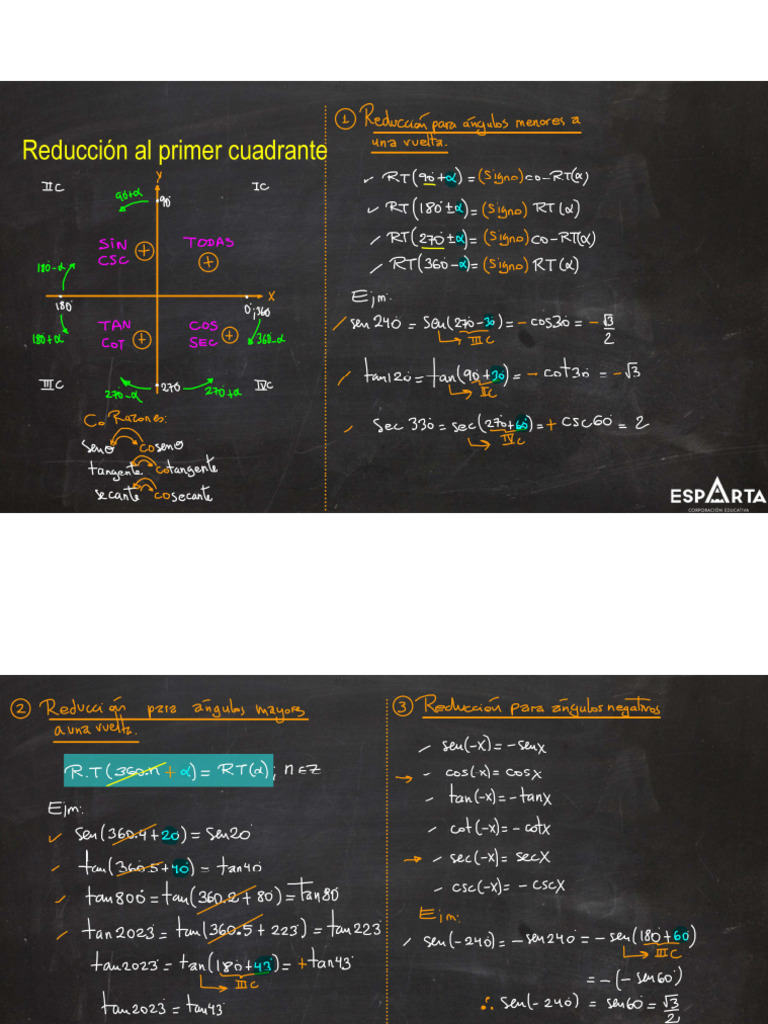 Reducción al primer cuadrante
IIC
90+α
y
90°
IC
SIN
CSC
+
TODAS
+
180-α
180°
0°;360°
x
180+α
TAN
COT
+
COS
SEC
+
360-α
IIIC
270-α
270°
270+α
IVC
Co Razones:
seno coseno
tangente cotangente
secante cosecante
① Reducción para ángulos menores a
una vuelta.
✓ RT(90°+α) = (Signo) co-RT(α)
✓ RT(180°±α) = (Signo) RT(α)
✓ RT(270°±α) = (Signo) co-RT(α)
✓ RT(360°-α) = (Signo) RT(α)
Ejm:
sen240° = Sen(270-30°) = -cos30° = -√3/2
IIIC
tan120° = tan(90+30°) = -cot30° = -√3
IIC
Sec330° = sec(270+60°) = +csc60° = 2
IVC
ESPARTA
CORPORACIÓN EDUCATIVA
② Reducción para ángulos mayores
a una vuelta.
R.T(360.n + α) = RT(α); n∈Z
Ejm:
✓ sen(360.4+20°) = sen20°
tan(360.5+40°) = tan40°
tan800° = tan(360.2+80°) = tan80°
tan2023° = tan(360.5+223°) = tan223°
tan2023° = tan(180+43°) = +tan43°
IIIC
tan2023° = tan43°
③ Reducción para ángulos negativos
sen(-x) = -senx
→ cos(-x) = cosx
tan(-x) = -tanx
cot(-x) = -cotx
→ sec(-x) = secx
csc(-x) = -cscx
Ejm:
sen(-240°) = -sen240° = -sen(180+60°)
IIIC
= -(-sen60°)
∴ sen(-240°) = sen60° = √3/2